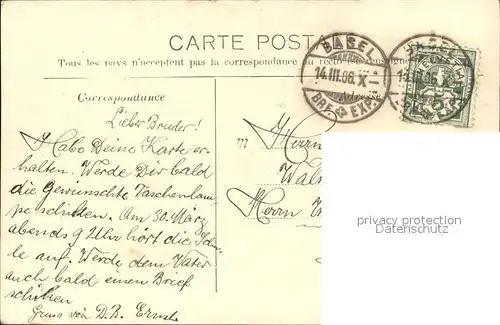 CARTE POSTA
Tous les pays n'acceptent pas la correspondance au recto
Correspondance
Adresse
BASEL
14.III.06.X
BRF. EXP.
BASEL
Lieber Bruder!
Habe Deine Karte er-
halten. Werde Dir bald
die Gewünschte Taschenlam-
pe schicken. Am 30. März
abends 9 Uhr hört die Schu-
le auf. Werde dem Vater
auch bald einen Brief
schicken
Gruss von D. B. Ernst
M
Herrn
Herrn
privacy protection
Datenschutz